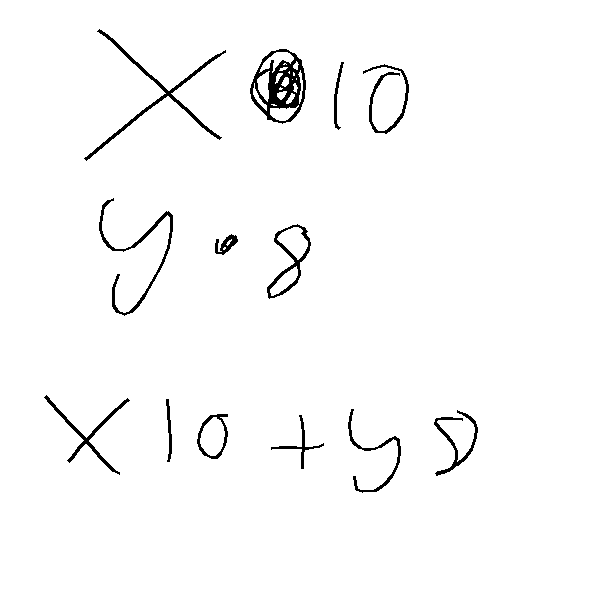 X • 10
y • 8
X 10 + y 8